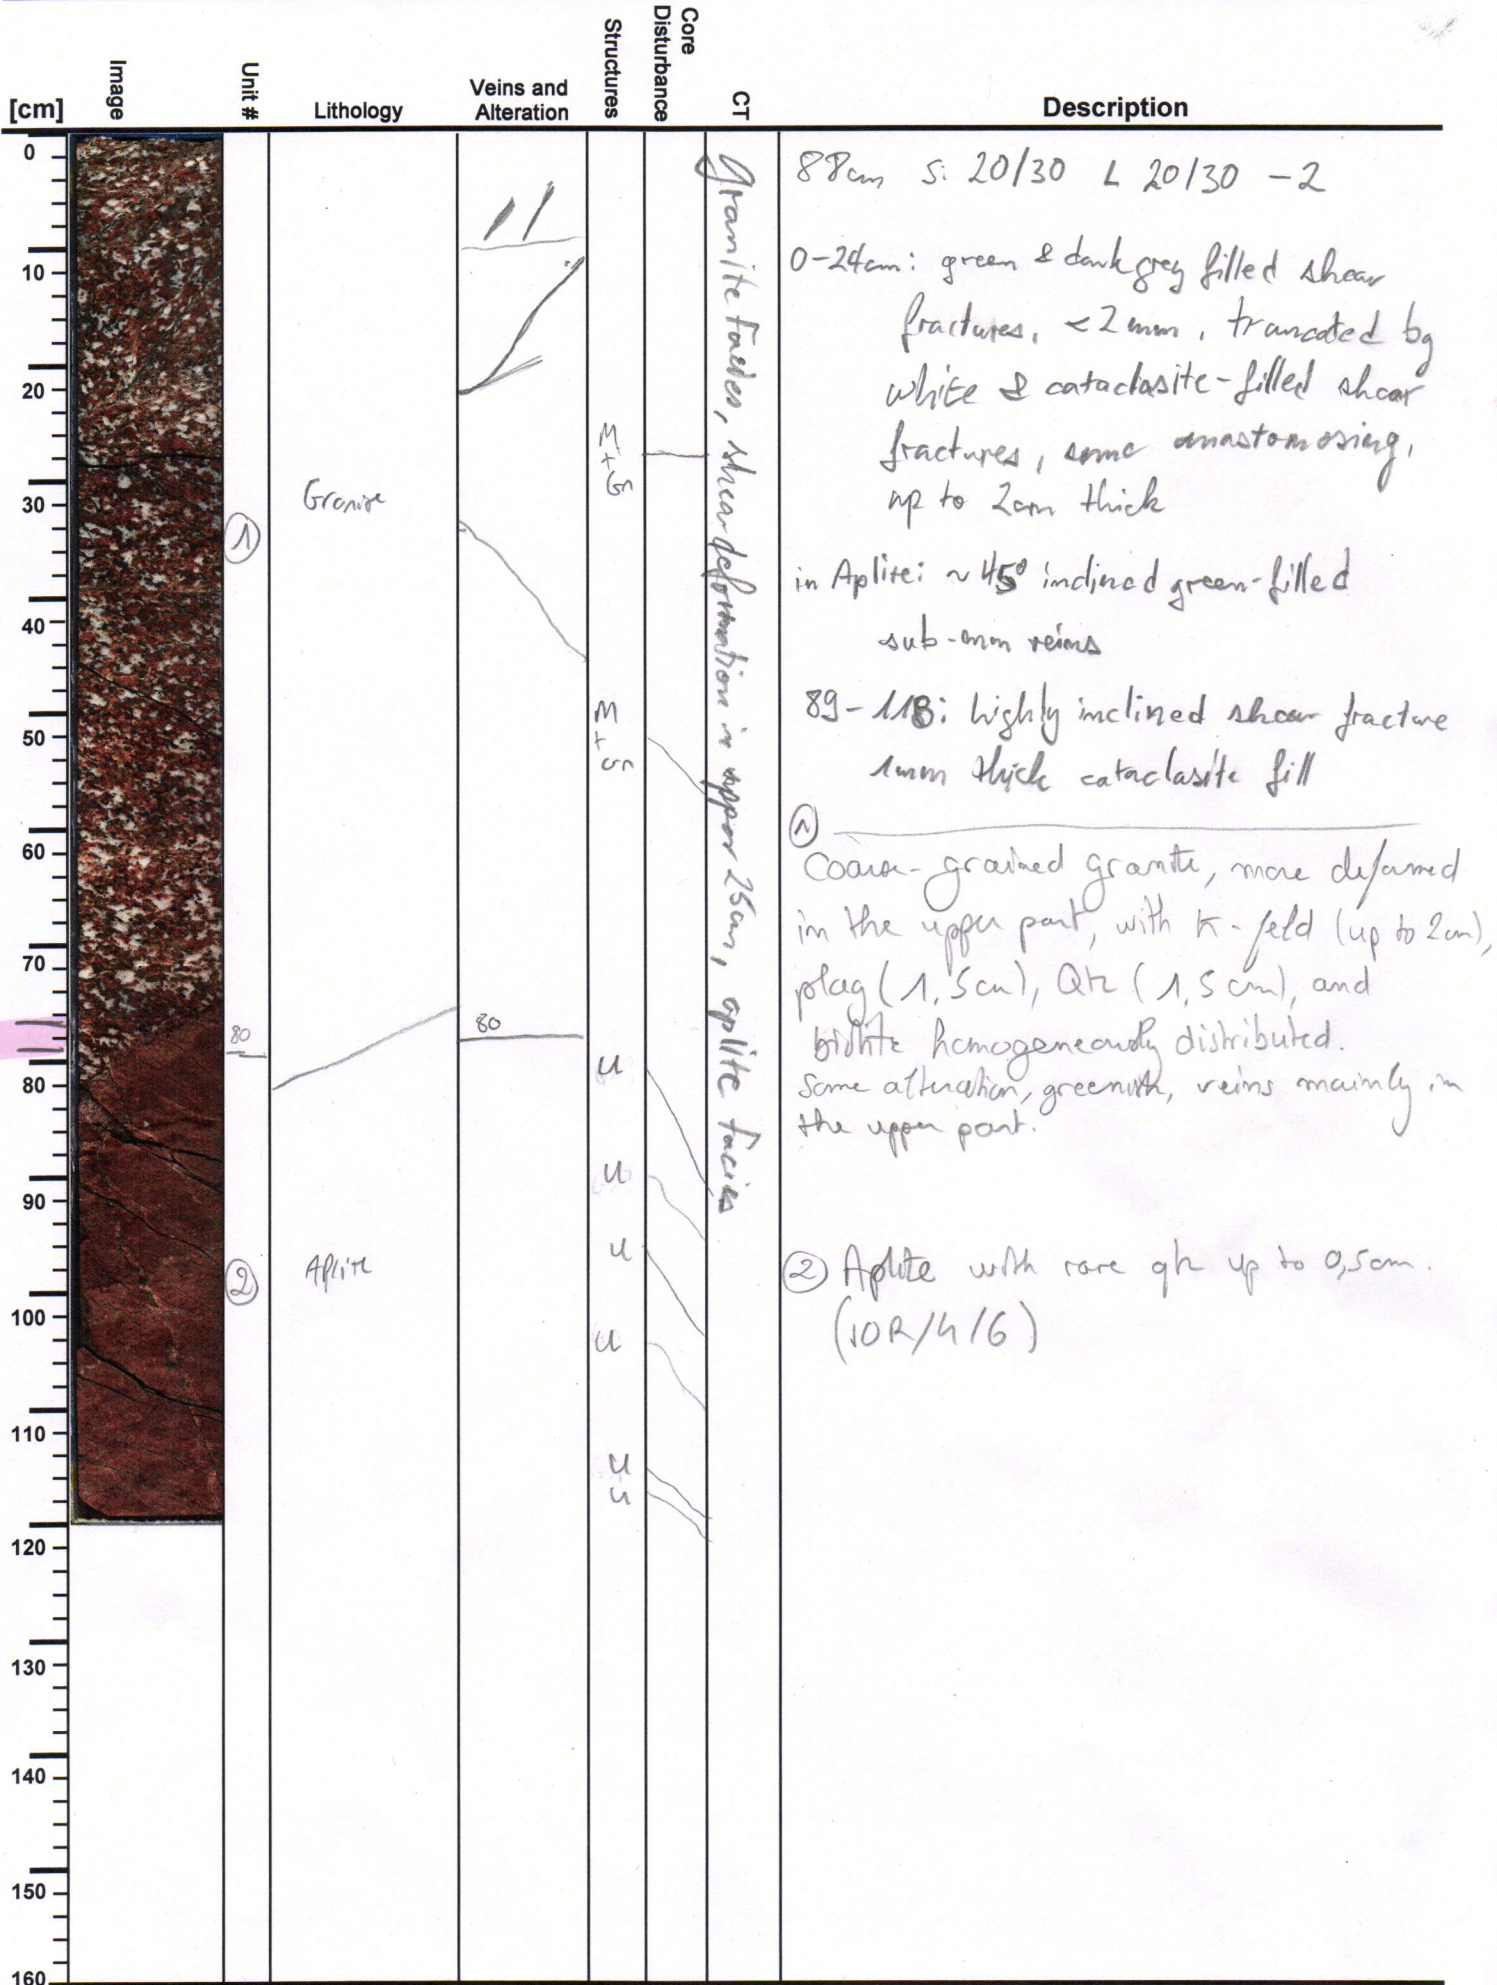 [cm]
Image
Unit #
Lithology
Veins and
Alteration
Structures
Core
Disturbance
CT
Description
0
10
20
30
40
50
60
70
80
90
100
110
120
130
140
150
160
1
Granite
80
80
2
Aplite
M
+
Gn
M
+
Gn
U
U
U
U
U
U
Granite facies, shear deformation in upper 25cm, aplite facies
88cm S: 20/30 L 20/30 -2
0-24cm: green & dark grey filled shear
fractures, <2mm, truncated by
white & cataclasite-filled shear
fractures, some anastomosing,
up to 2cm thick
in Aplite: ~45° inclined green-filled
sub-mm veins
89-118: highly inclined shear fracture
1mm thick cataclasite fill
1
Coarse-grained granite, more deformed
in the upper part, with K-feld (up to 2cm),
plag (1,5cm), Qtz (1,5cm), and
biotite homogeneously distributed.
Some alteration, greenish, veins mainly in
the upper part.
2 Aplite with rare qtz up to 0,5cm.
(10R/4/6)